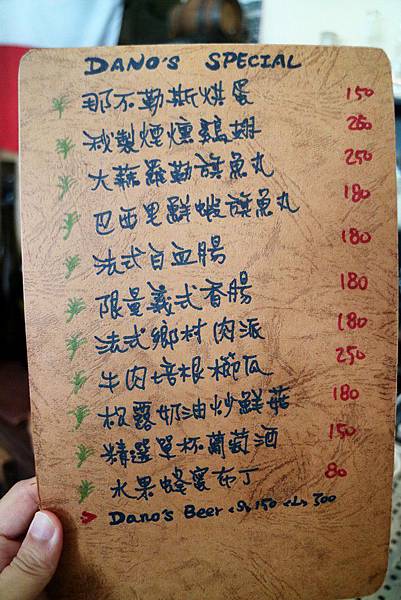 DANO'S SPECIAL
那不勒斯烘蛋 150
秘製煙燻雞翅 260
大蒜羅勒旗魚丸 250
巴西里鮮蝦旗魚丸 180
法式白血腸 180
限量義式香腸 180
法式鄉村肉派 180
牛肉培根櫛瓜 250
松露奶油炒鮮菇 180
精選單杯葡萄酒 150
水果蜂蜜布丁 80
Dano's Beer <S> 150 <L> 300